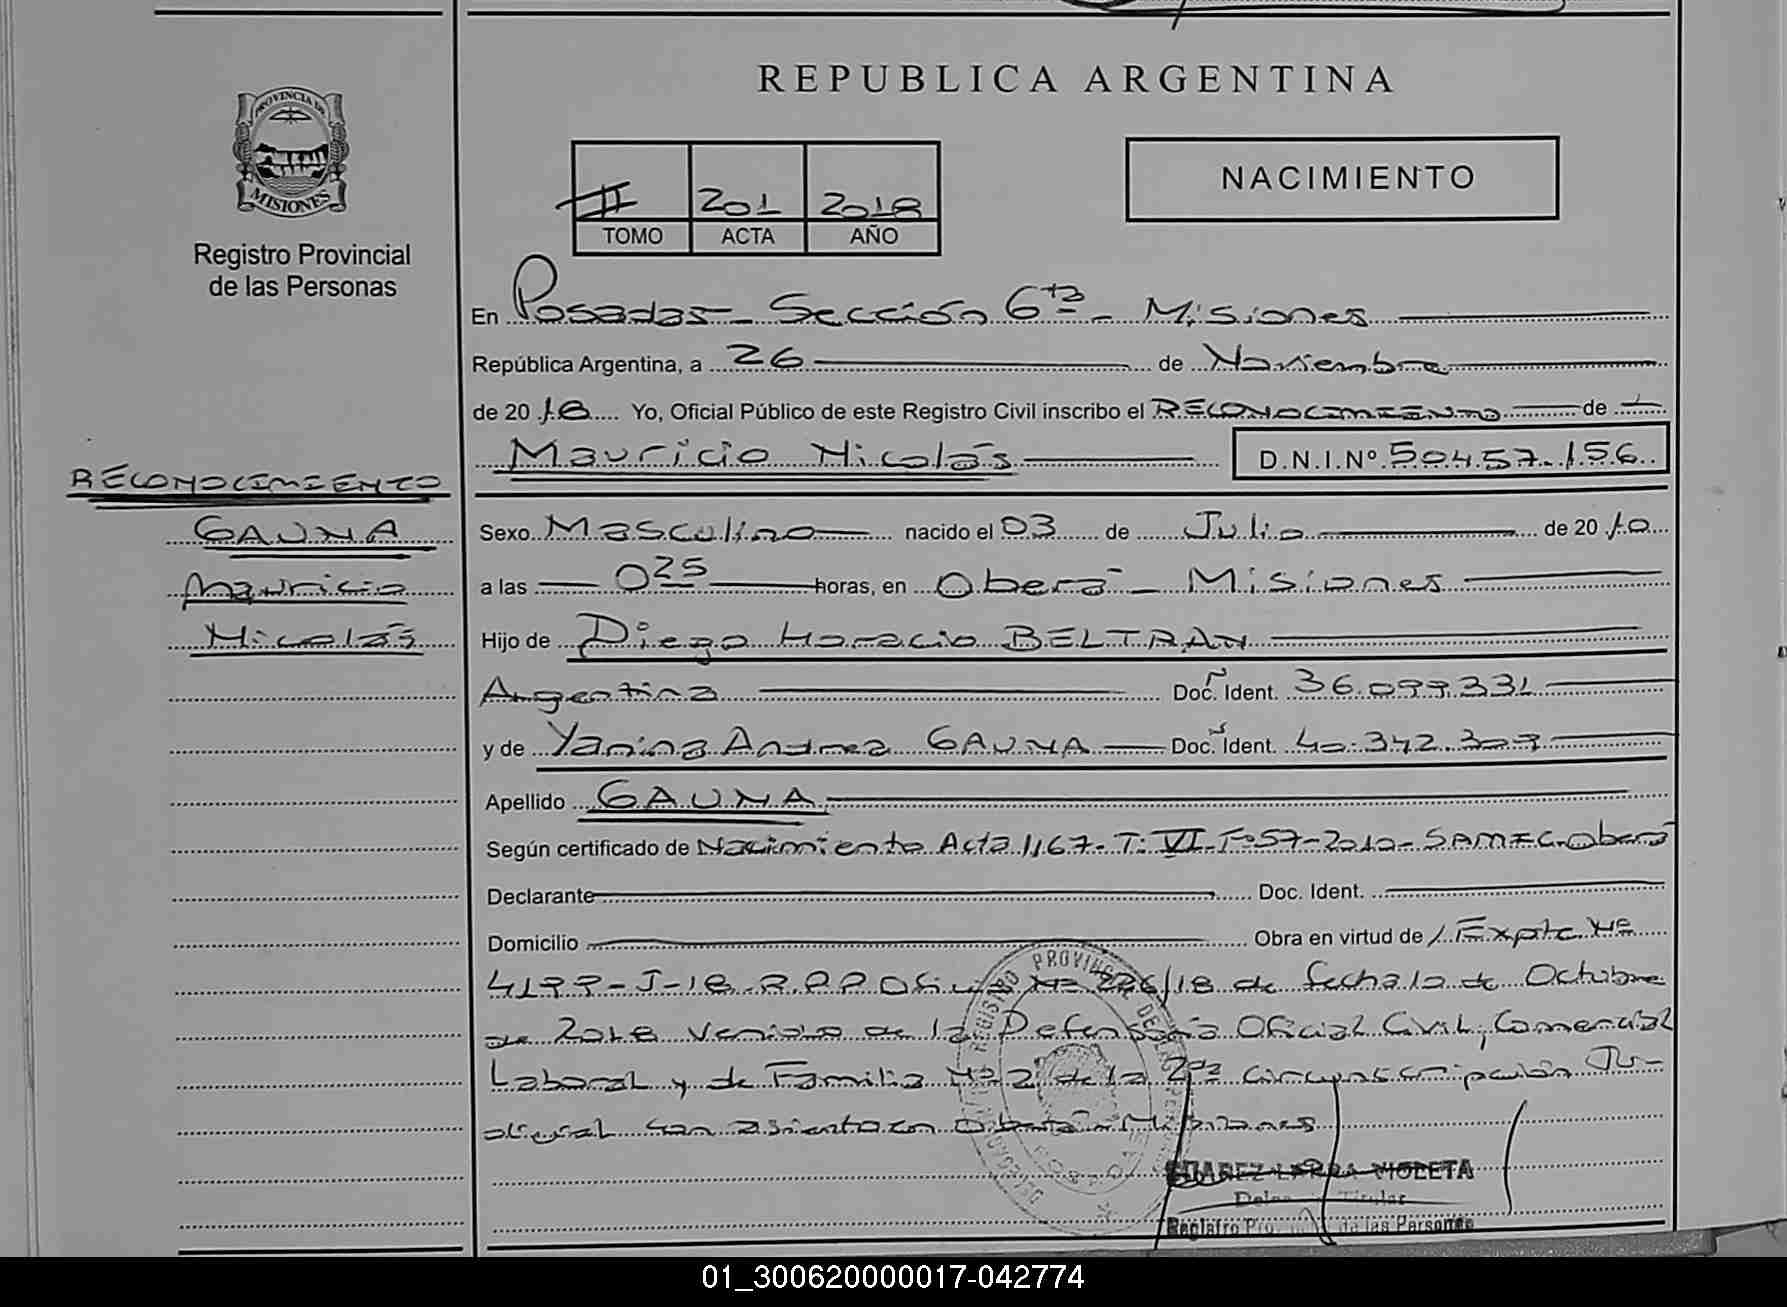 REPUBLICA ARGENTINA
PROVINCIA DE
MISIONES
Registro Provincial
de las Personas
NACIMIENTO
II 201 2018
TOMO ACTA AÑO
En Posadas - Sección 6ta - Misiones
República Argentina, a 26 de Noviembre
de 2018 Yo, Oficial Público de este Registro Civil inscribo el RECONOCIMIENTO de
Mauricio Nicolás D.N.I.Nº 50.457.156
RECONOCIMIENTO
GAUNA
Mauricio
Nicolás
Sexo Masculino nacido el 03 de Julio de 2010
a las 0 25 horas, en Oberá - Misiones
Hijo de Diego Horacio BELTRAN
Argentina Doc. Ident. 36.099.331
y de Yanina Andrea GAUNA Doc. Ident. 40.342.307
Apellido GAUNA
Según certificado de Nacimiento Acta 1167- T: VI- Fº57-2010- SAMIC-Oberá
Declarante Doc. Ident.
Domicilio Obra en virtud de Expte Nº
4199-J-18-R.P.P Oficio Nº 226/18 de fecha 10 de Octubre
de 2018 venido de la Defensoría Oficial Civil, Comercial
Laboral y de Familia Nº 2 de la 2da circunscripción Ju-
dicial con asiento en Oberá - Misiones
REGISTRO PROVINCIAL DE LAS PERSONAS
SUAREZ LARRA VIOLETA
Titular
Registro Pro de las Personas
01_300620000017-042774